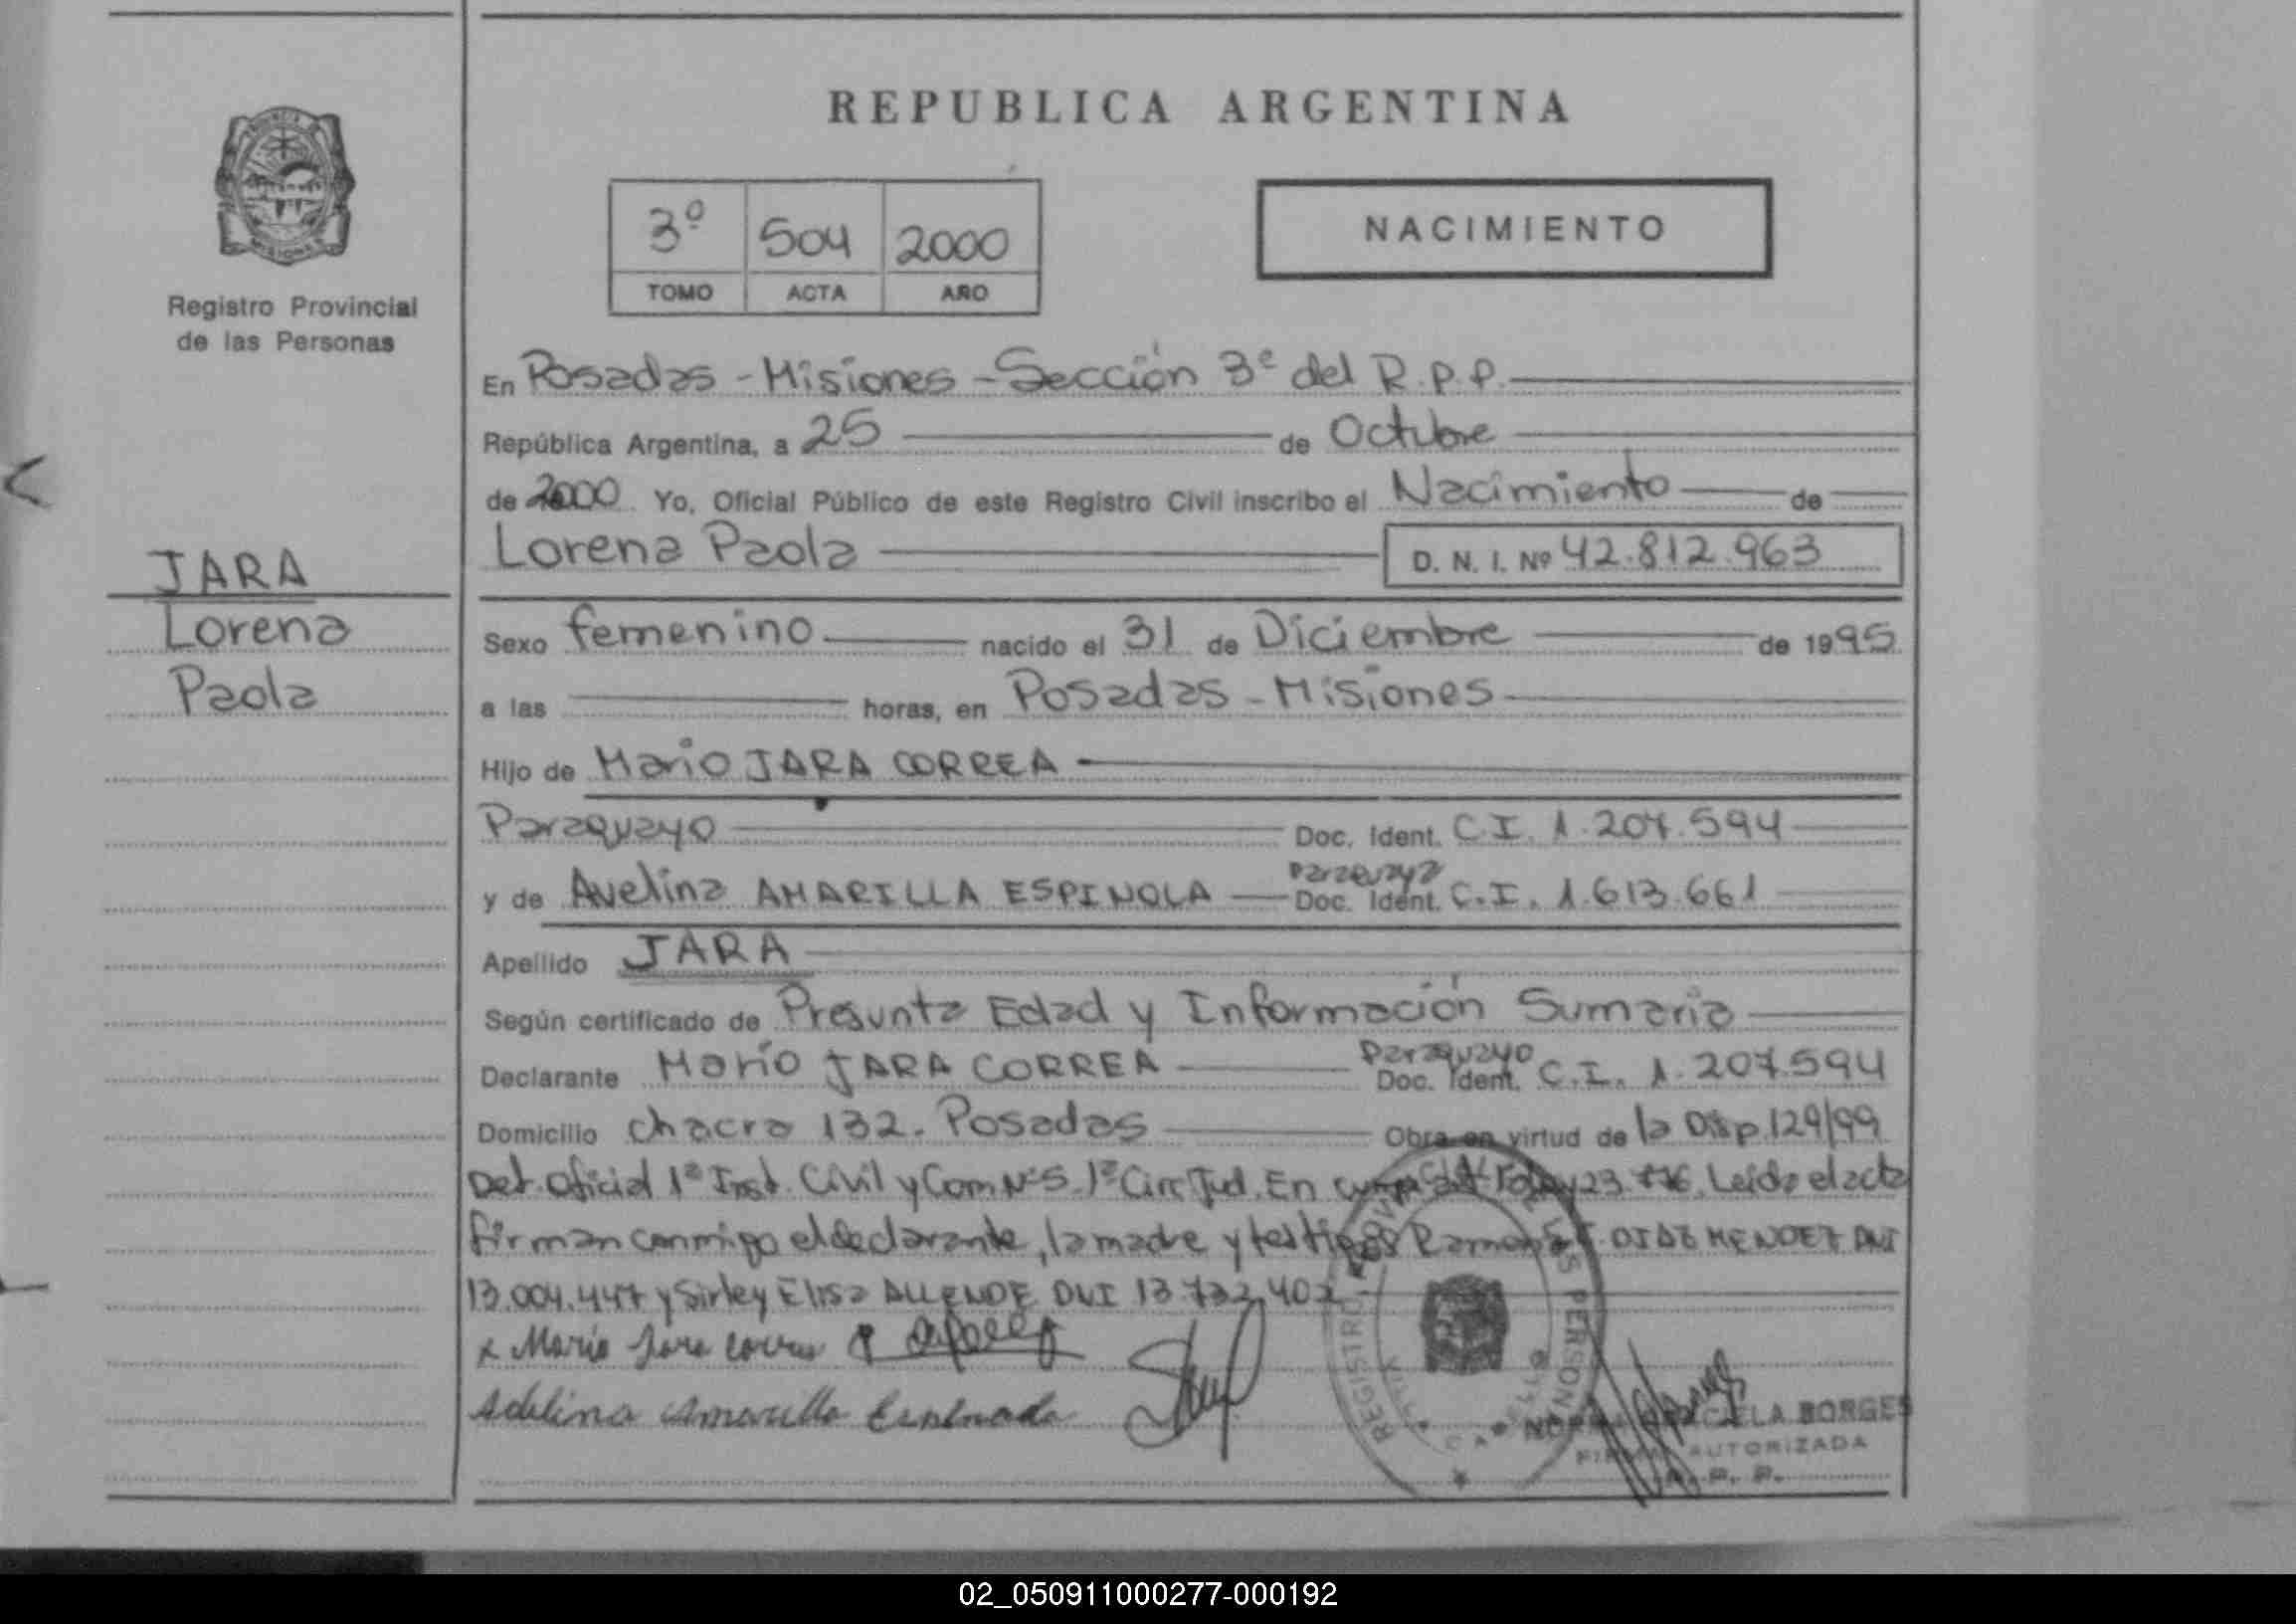 REPUBLICA ARGENTINA
3º 504 2000
TOMO ACTA AÑO
NACIMIENTO
Registro Provincial
de las Personas
En Posadas - Misiones - Sección 3ª del R.P.P.
República Argentina, a 25 de Octubre
de 2000 Yo, Oficial Público de este Registro Civil inscribo el Nacimiento de
Lorena Paola D. N. I. Nº 42.812.963
JARA
Lorena
Paola
Sexo femenino nacido el 31 de Diciembre de 1995
a las horas, en Posadas - Misiones
Hijo de Mario JARA CORREA
Paraguayo Doc. Ident. C.I. 1.207.594
Paraguaya
y de Avelina AMARILLA ESPINOLA Doc. Ident. C.I. 1.613.661
Apellido JARA
Según certificado de Presunta Edad y Información Sumaria
Paraguayo
Declarante Mario JARA CORREA Doc. Ident. C.I. 1.207.594
Domicilio chacra 132. Posadas Obra en virtud de la Disp. 129/99
Det. Oficial 1ª Inst. Civil y Com Nº 5. 1ª Circ Jud. En 23.776. Leída el acta
firman conmigo el declarante, la madre y testigos DIAZ MENDEZ DNI
13.004.447 y Sirley Elisa ALLENDE DNI 13.732.402
x Mario Jara correa
Adelina Amarilla
REGISTRO PERSONAS
BORGES
FIRMA AUTORIZADA
R. P. P.
02_050911000277-000192